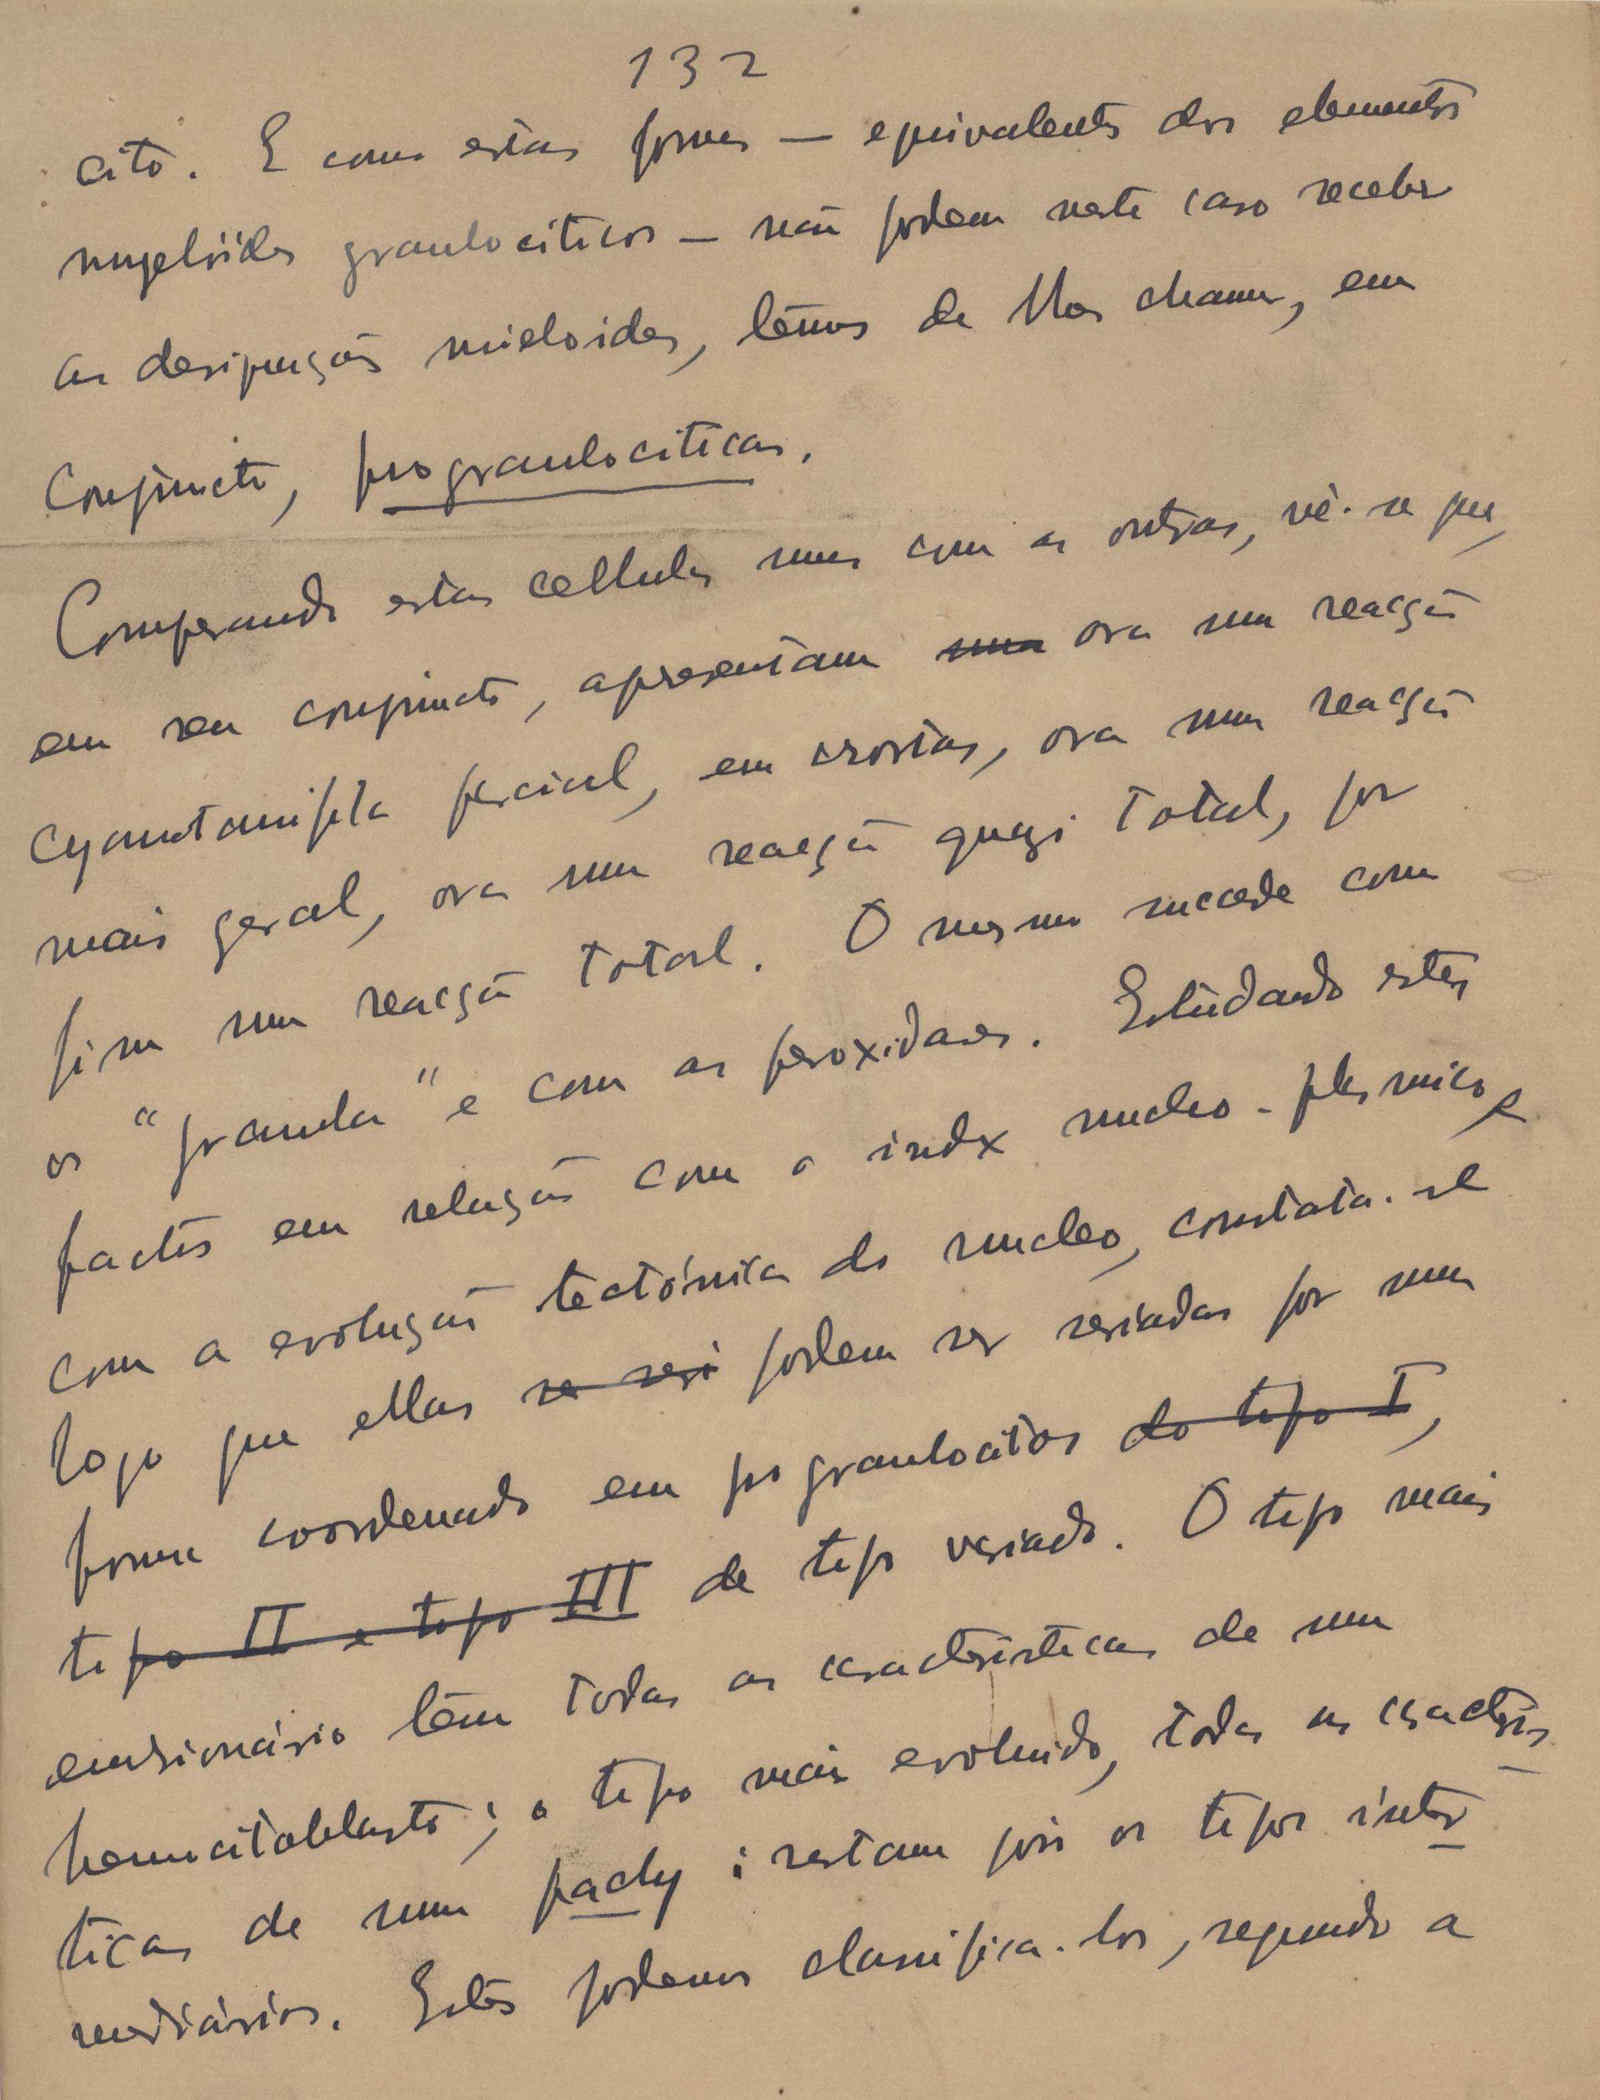 132
cito. E como estas formas — equivalentes dos elementos
myelóides granulociticos — não podem neste caso receber
as designações mieloides, têmos de lhas chamar, em
conjuncto, progranulociticas.
Comparando estas cellulas umas com as outras, vê-se que,
em seu conjuncto, apresentam uma ora uma reacção
parcial, em crostas, ora uma reacção
mais geral, ora uma reacção quazi total, por
fim uma reacção total. O mesmo succede com
os "granula" e com as peroxidases. Estudando estes
factos em relação com o index nucleo-plasmico e
com a evolução tectónica do nucleo, constata-se
logo que ellas se seri podem ser seriadas por uma
forma coordenada em progranulocitos do tipo I,
tipo II e tipo III de tipo variado. O tipo mais
embrionário têm todas as caracteristicas de um
hemocitoblasto; o tipo mais evoluido, todas as caracterís
ticas de um pachy; restam pois os tipos inter
mediários. Estes podemos classifica-los, segundo a